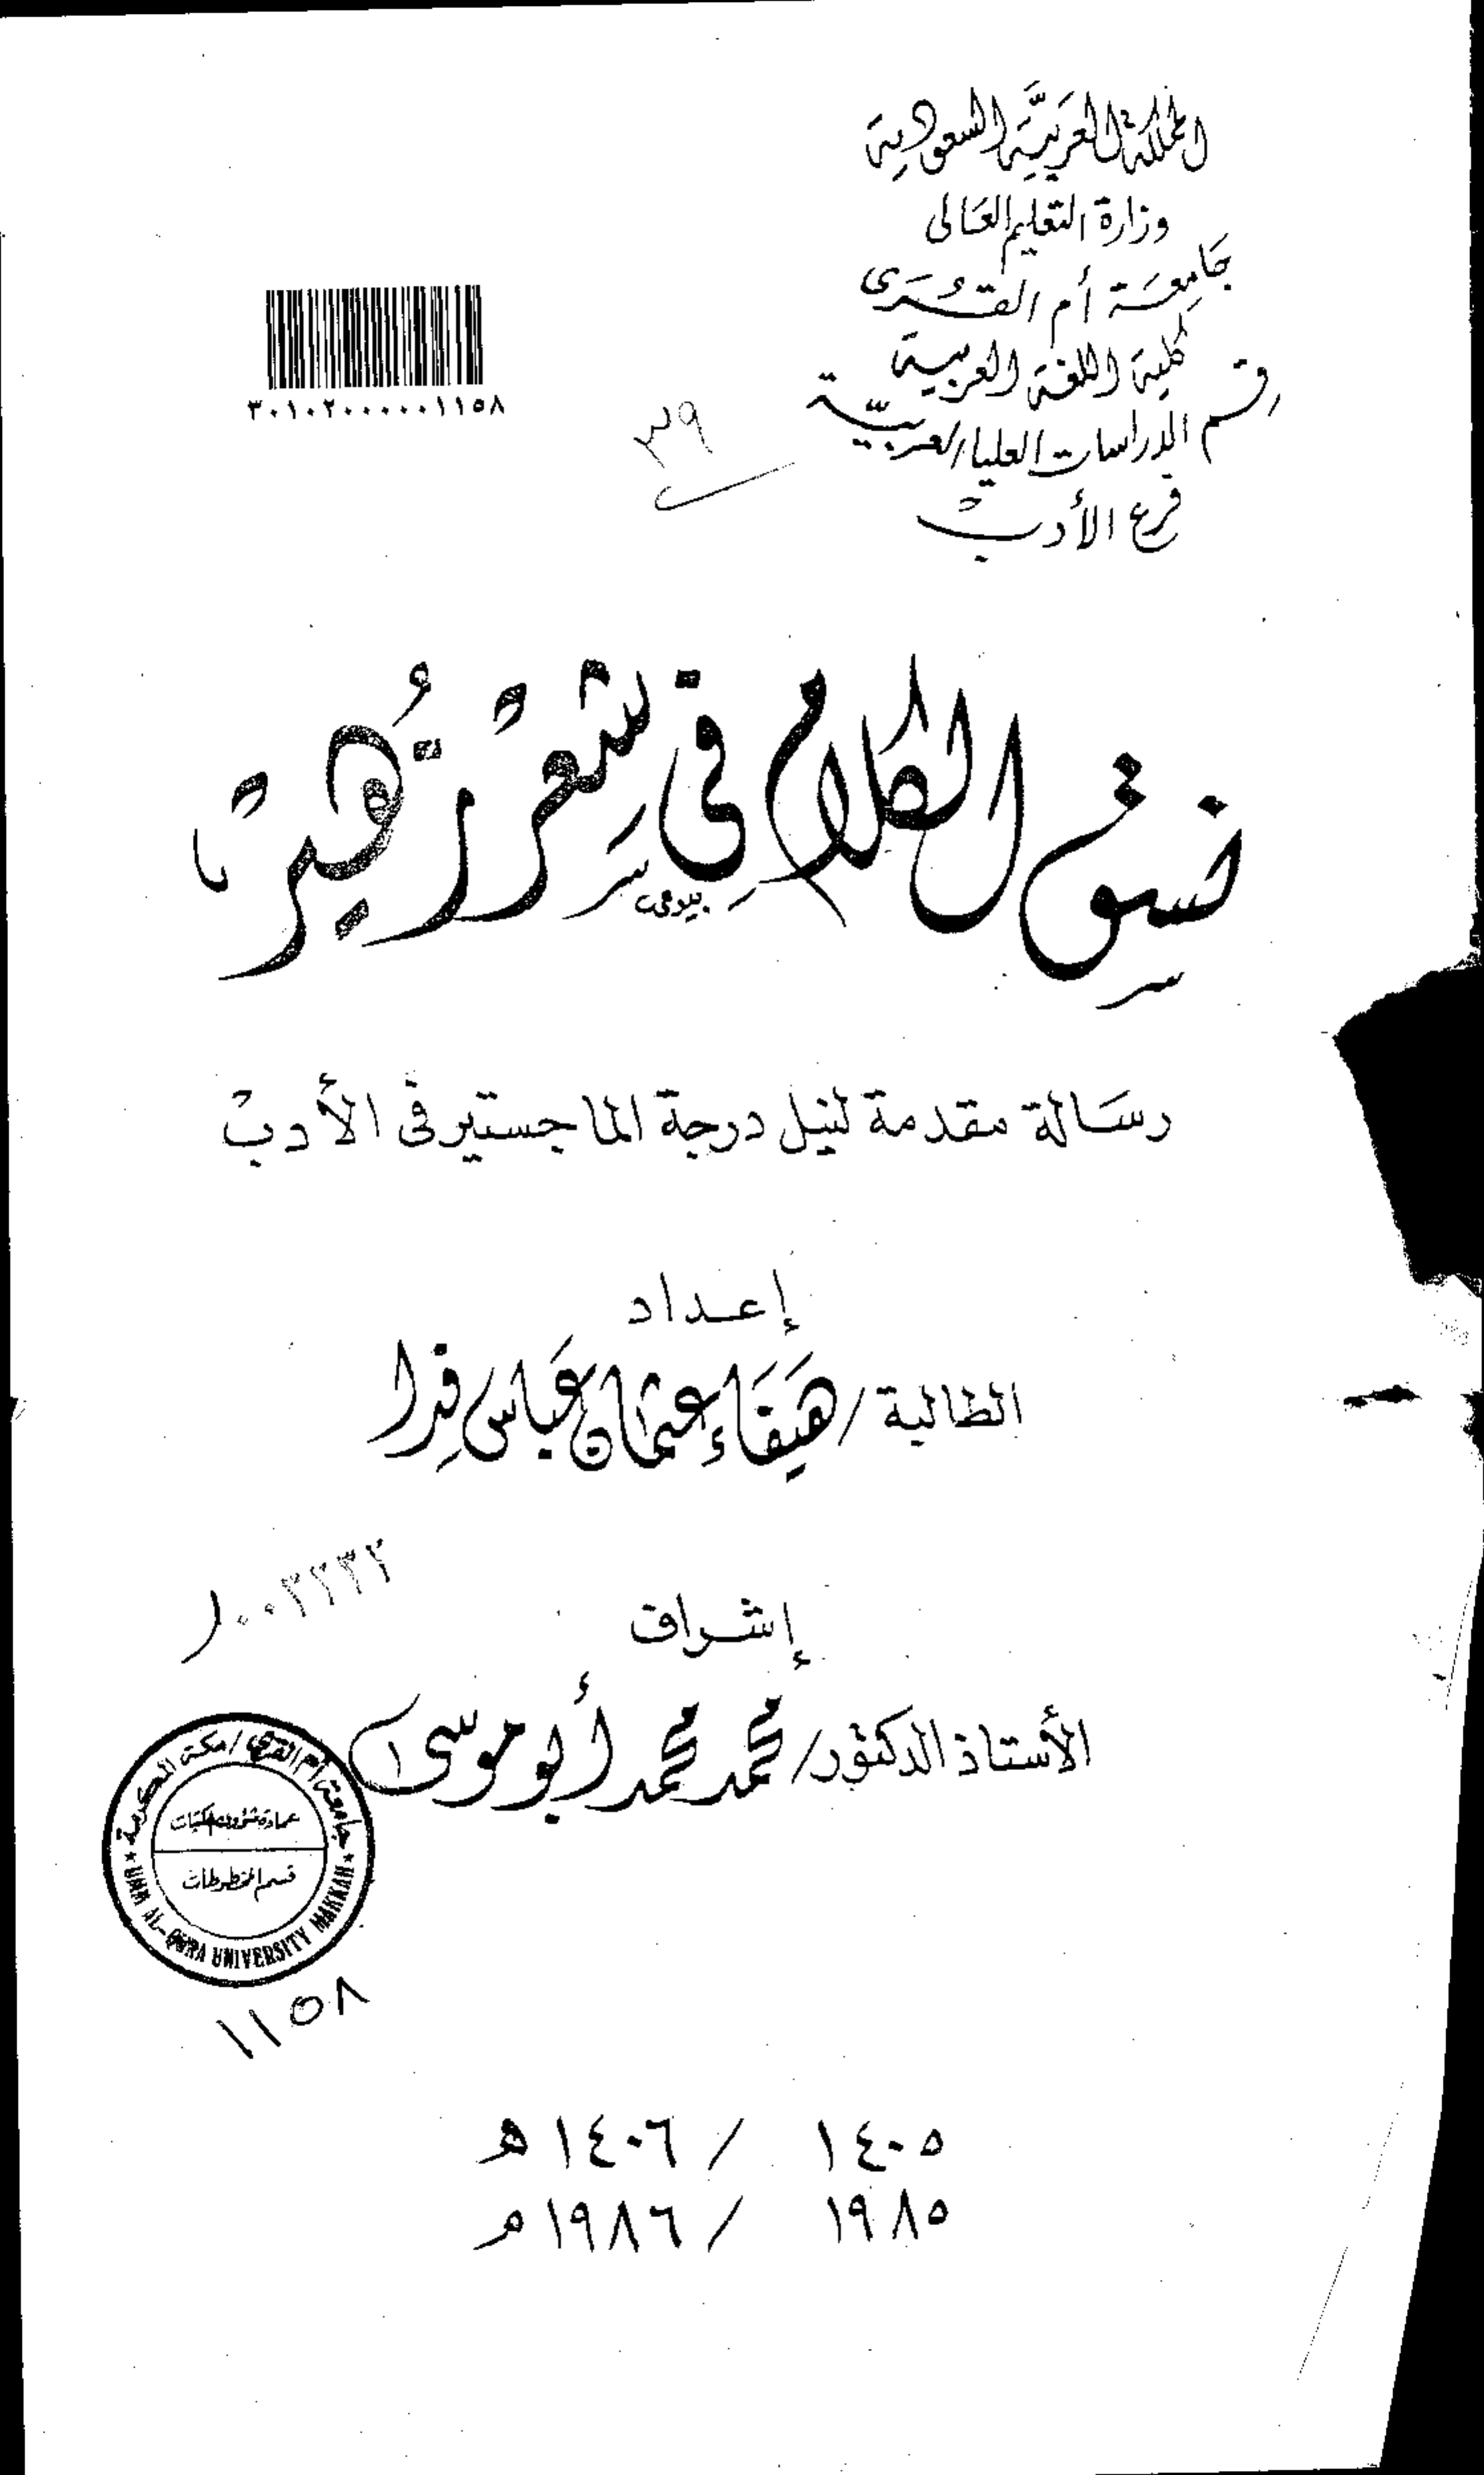 المملكة العربية السعودية
وزارة التعليم العالى
جامعة أم القرى
كلية اللغة العربية
قسم الدراسات العليا العربية
فرع الأدب
٣٠١٠٢٠٠٠٠٠٠١١٥٨
٣٩
نسق الكلام في شعر زهير
رسالة مقدمة لنيل درجة الماجستير فى الأدب
إعداد
الطالبة / هيفاء عثمان عباس فدا
إشراف
الأستاذ الدكتور / محمد محمد أبو موسى
جامعة أم القرى / مكة المكرمة
عمادة شؤون المكتبات
قسم المخطوطات
UMM AL-QURA UNIVERSITY MAKKAH
١١٥٨
١٤٠٥ / ١٤٠٦ هـ
١٩٨٥ / ١٩٨٦ م